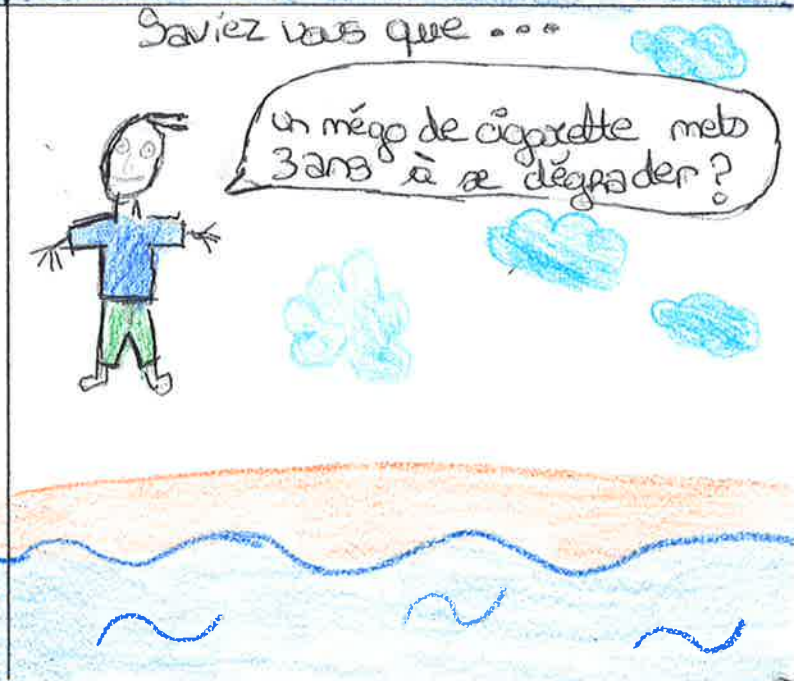 Saviez vous que ...
un mégo de cigarette mets
3 ans à se dégrader ?